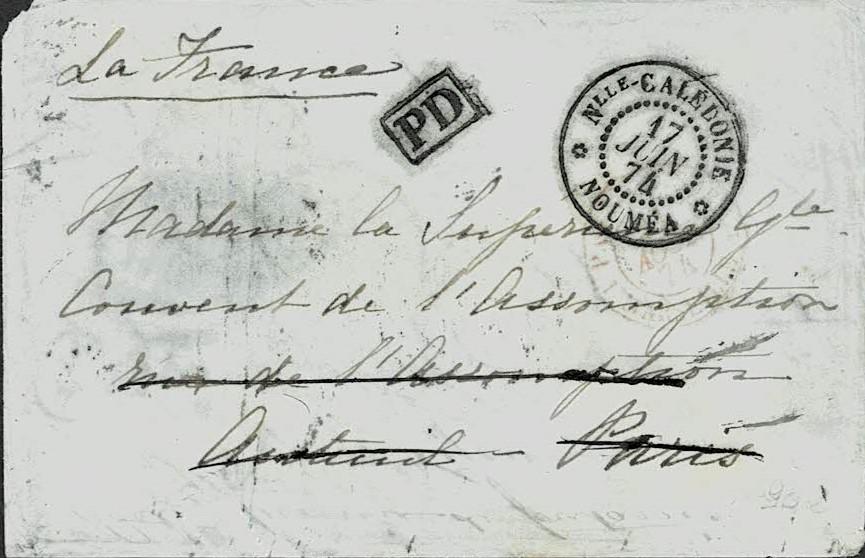 La France
PD
NLLE-CALÉDONIE
17
JUIN
74
NOUMÉA
Madame la Supérieure Gle
Couvent de l'Assomption
rue de l'Assomption
Auteuil - Paris